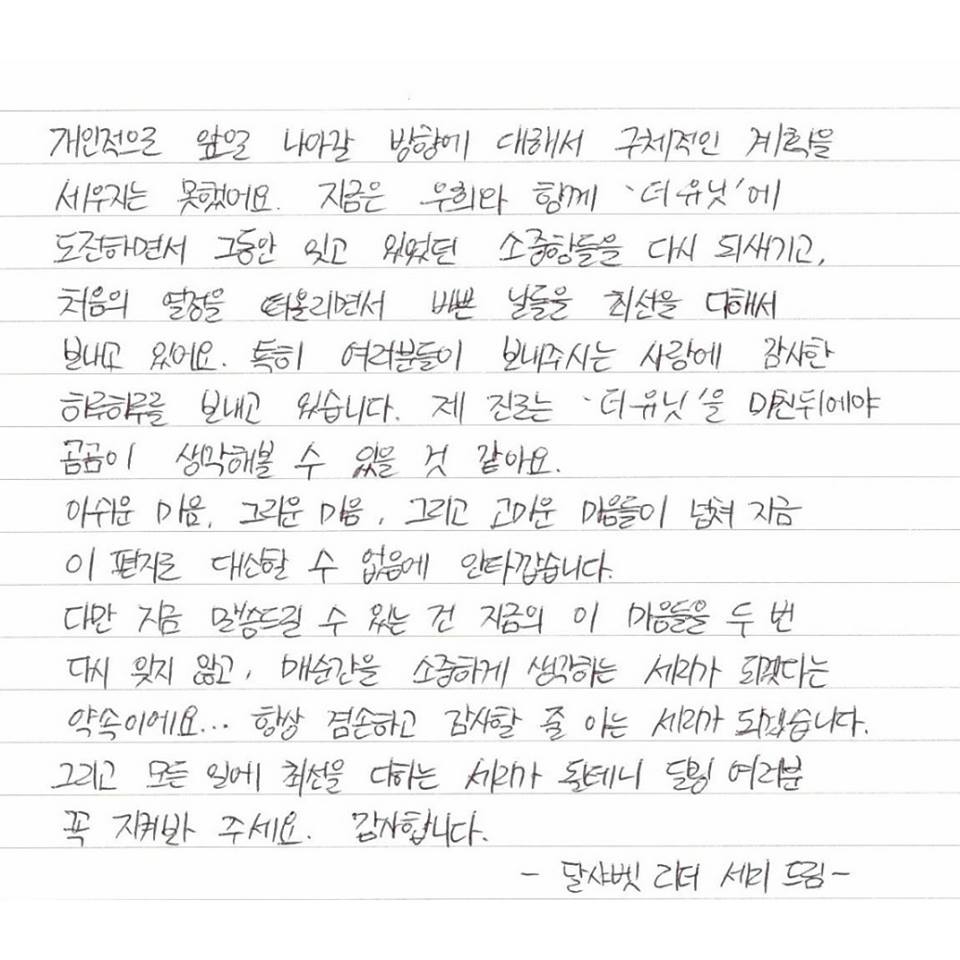 개인적으로 앞일 나아갈 방향에 대해서 구체적인 계획을
세우지는 못했어요. 지금은 우희와 함께 '더유닛'에
도전하면서 그동안 잊고 있었던 소중함들을 다시 되새기고,
처음의 열정을 떠올리면서 바쁜 날들을 최선을 다해서
보내고 있어요. 특히 여러분들이 보내주시는 사랑에 감사한
하루하루를 보내고 있습니다. 제 진로는 '더유닛'을 마친뒤에야
곰곰이 생각해볼 수 있을 것 같아요.
아쉬운 마음, 그리운 마음, 그리고 고마운 마음들이 넘쳐 지금
이 편지로 대신할 수 없음에 안타깝습니다.
다만 지금 말씀드릴 수 있는 건 지금의 이 마음들을 두 번
다시 잊지 않고, 매순간을 소중하게 생각하는 세리가 되겠다는
약속이에요... 항상 겸손하고 감사할 줄 아는 세리가 되겠습니다.
그리고 모든 일에 최선을 다하는 세리가 될테니 달링 여러분
꼭 지켜봐 주세요. 감사합니다.
- 달샤벳 리더 세리 드림 -